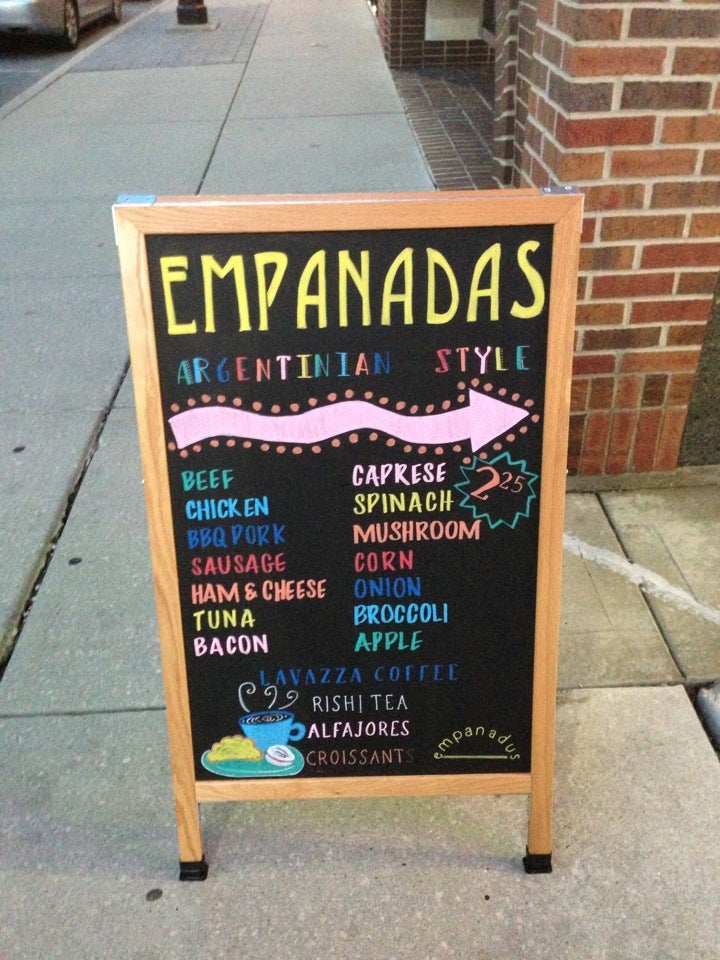 EMPANADAS
ARGENTINIAN STYLE
BEEF
CHICKEN
BBQ PORK
SAUSAGE
HAM & CHEESE
TUNA
BACON
CAPRESE
SPINACH
MUSHROOM
CORN
ONION
BROCCOLI
APPLE
2 25
LAVAZZA COFFEE
RISHI TEA
ALFAJORES
CROISSANTS
empanadus